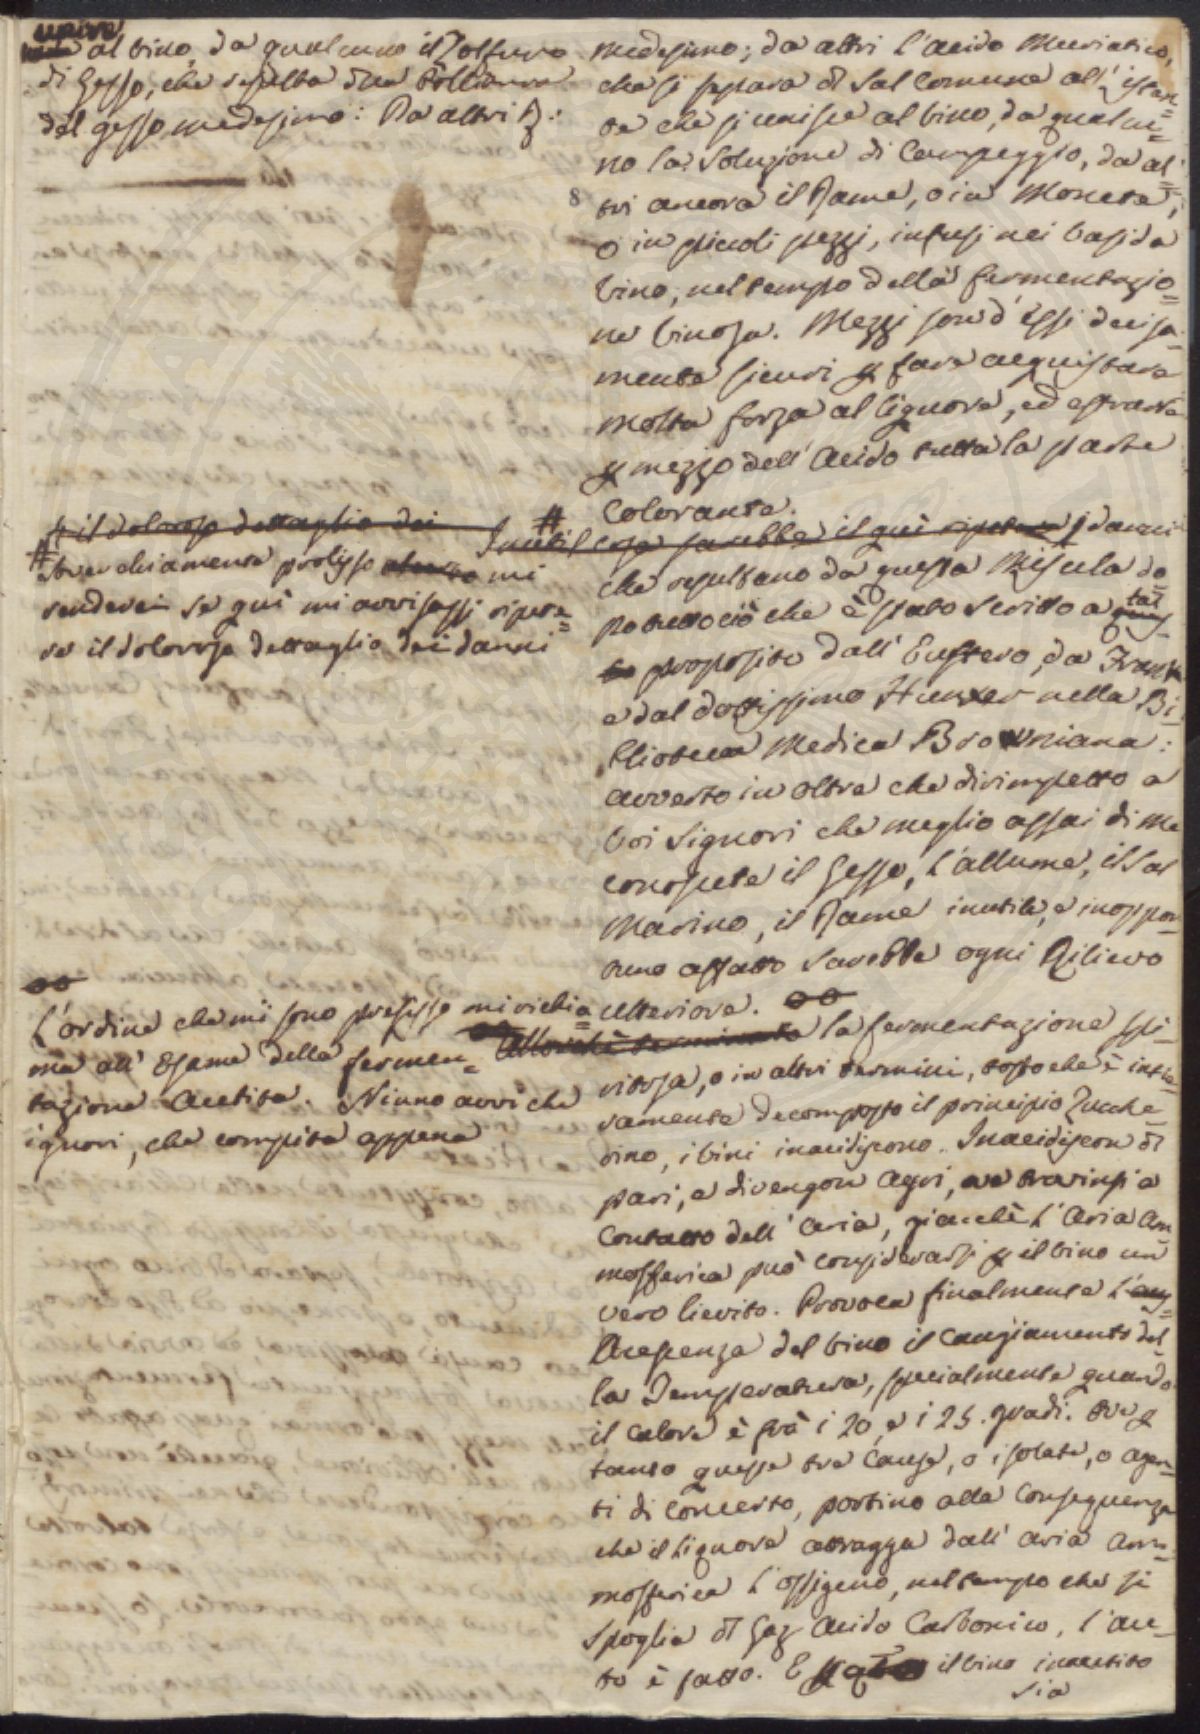 unire
al vino, da qualcuno il Solfuro
di Gesso, che risulta dalla
del gesso medesimo: Da altri
Il doloroso dettaglio dei
# Soverchiamente prolisso mi
renderei se quì mi avvisassi ripete=
re il doloroso dettaglio dei danni
L'ordine che mi sono prefisso mi richia=
ma all' Esame della fermen=
tazione Acetosa. Niuno avvi che
ignori, che compita appena
medesimo; da altri l'acido Muriatico,
che si separa dal Sal Comune all' istan=
te che si unisce al vino, da qualcu=
no la Soluzione di Campeggio, da al=
8
tri ancora il Rame, o in Moneta,
o in piccoli pezzi, infusi nei vasi da
vino, nel tempo della fermentazio=
ne vinosa. Mezzi son d'essi decisa=
mente sicuri per fare acquistare
molta forza al liquore, ed estrarre
per mezzo dell' acido tutta la parte
Colorante.
# Inutil cosa sarebbe il quì ripetere i danni
che resultano da questa Miscela do=
po tutto ciò che è stato scritto a tal
proposito dall' , da Frank
e dal dottissimo Hunter nella Bi=
blioteca Medica Browniana:
avverto in oltre che dirimpetto a
voi Signori che meglio assai di me
conoscete il Gesso, l'allume, il Sal
Marino, il Rame inutile, e inoppor=
tuno affatto sarebbe ogni Rilievo
ulteriore.
Allorchè terminata la fermentazione spi=
ritosa, o in altri termini, tosto che è intie=
ramente decomposto il principio Zucche=
rino, i vini inacidiscono. Inacidiscon del
pari, e divengon agri, ove trovinsi a
Contatto dell' aria, giacchè l'aria Am=
mosferica può considerarsi per il vino un
vero lievito. Provoca finalmente l'
Acescenza del vino il Cangiamento del=
la Temperatura, specialmente quando
il calore è frà i 20, e i 25. gradi. Ove per
tanto queste tre Cause, o isolate, o agen=
ti di Concerto, portino alla Conseguenza
che il Liquore attragga dall' aria Am=
mosferica l'Ossigeno, nel tempo che si
spoglia del Gaz Acido Carbonico, l'ace=
to è fatto. E il vino inacetito
sia